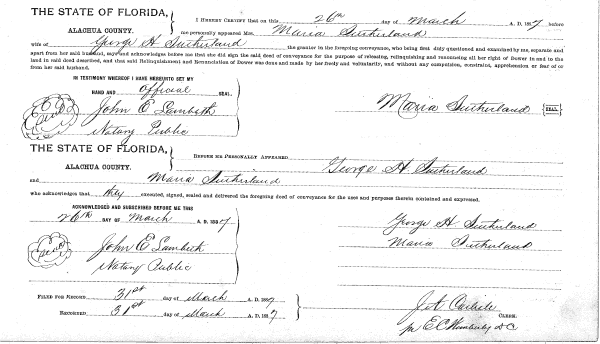 THE STATE OF FLORIDA,
ALACHUA COUNTY.
I HEREBY CERTIFY that on this 26th day of March A. D. 1887, before
me personally appeared Mrs. Maria Sutherland
wife of George H. Sutherland the grantor in the foregoing conveyance, who being first duly questioned and examined by me, separate and
apart from her said husband, says and acknowledges before me that she did sign the said deed of conveyance for the purpose of releasing, relinquishing and renouncing all her right of Dower in and to the
land in said deed described, and that said Relinquishment and Renunciation of Dower was done and made by her freely and voluntarily, and without any compulsion, constraint, apprehension or fear of or
from her said husband.
IN TESTIMONY WHEREOF I HAVE HEREUNTO SET MY
HAND AND Official SEAL.
Seal John E Lambeth
Notary Public
Maria Sutherland SEAL
THE STATE OF FLORIDA,
ALACHUA COUNTY.
BEFORE ME PERSONALLY APPEARED George H. Sutherland
and Maria Sutherland
who acknowledges that they executed, signed, sealed and delivered the foregoing deed of conveyance for the uses and purposes therein contained and expressed.
ACKNOWLEDGED AND SUBSCRIBED BEFORE ME THIS
26th DAY OF March A. D. 1887
Seal John E Lambeth
Notary Public
George H. Sutherland
Maria Sutherland
FILED FOR RECORD 31st day of March A. D. 1887
RECORDED 31st day of March A. D. 1887
J. A. Carlisle CLERK.
pr E C Wimberly D C